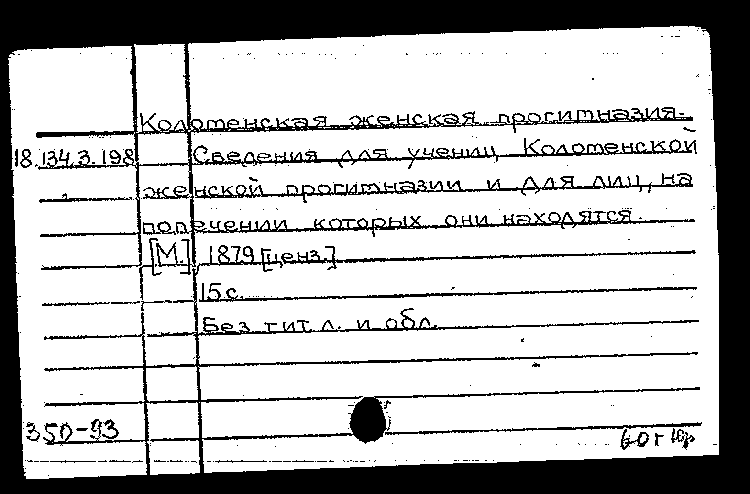 Колотенская женская прогимназия.
18.134.3.198 Сведения для учениц Колотенской
женской прогимназии и для лиц, на
попечении которых они находятся.
[М.], 1879 [ценз.]
15 с.
Без тит. л. и обл.
350-93